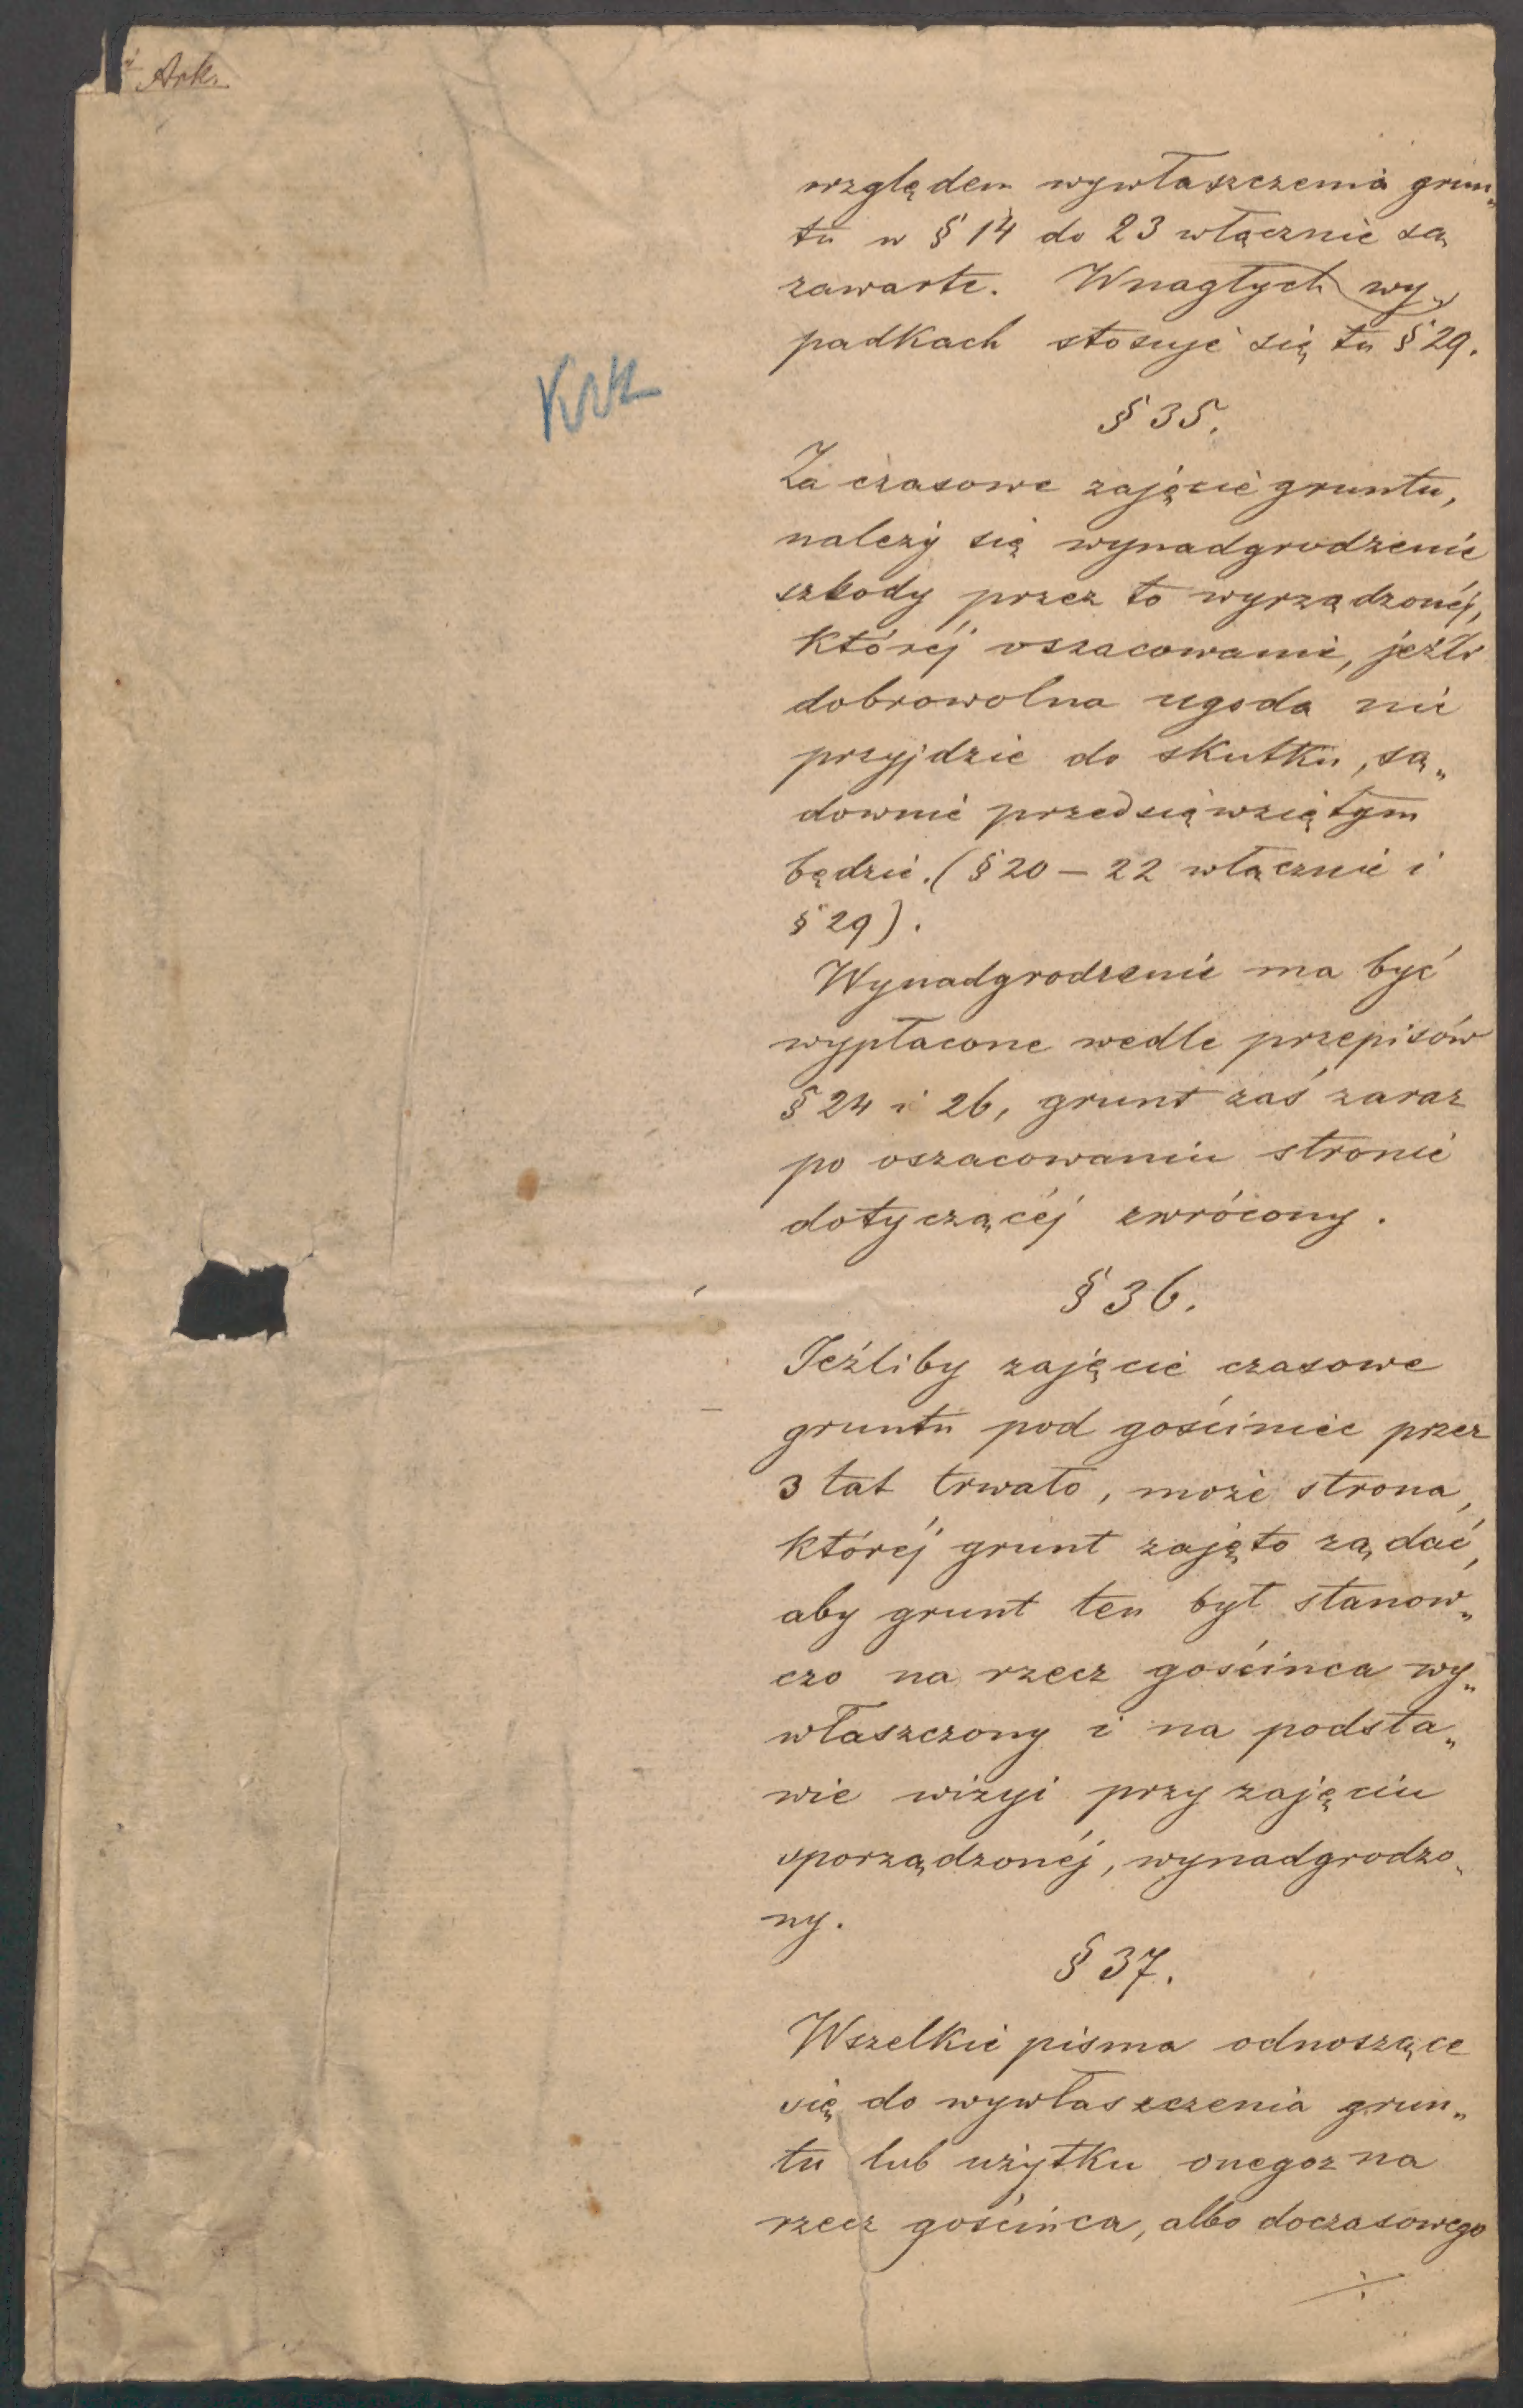 Ark.
względem wywłaszczenia grun„
tu w § 14 do 23 włącznie są
zawarte. W nagłych wy„
padkach stosuje się tu § 29.
§ 35.
Za czasowe zajęcie gruntu,
należy się wynadgrodzenie
szkody przez to wyrządzonéj,
któréj oszacowanie, jeźli
dobrowolna ugoda nie
przyjdzie do skutku, są„
downie przedsięwziętym
będzie. (§ 20 – 22 włącznie i
§ 29).
Wynadgrodzenie ma być
wypłacone wedle przepisów
§ 24 i 26, grunt zaś zaraz
po oszacowaniu stronie
dotyczącéj zwrócony.
§ 36.
Jeźliby zajęcie czasowe
gruntu pod gościniec przez
3 lat trwało, może strona,
któréj grunt zajęto żądać,
aby grunt ten był stanow„
czo na rzecz gościńca wy„
właszczony i na podsta„
wie wizyi przy zajęciu
sporządzonéj, wynadgrodzo„
ny.
§ 37.
Wszelkie pisma odnoszące
się do wywłaszczenia grun„
tu lub użytku onegoz na
rzecz gościńca, albo doczasowego
./.